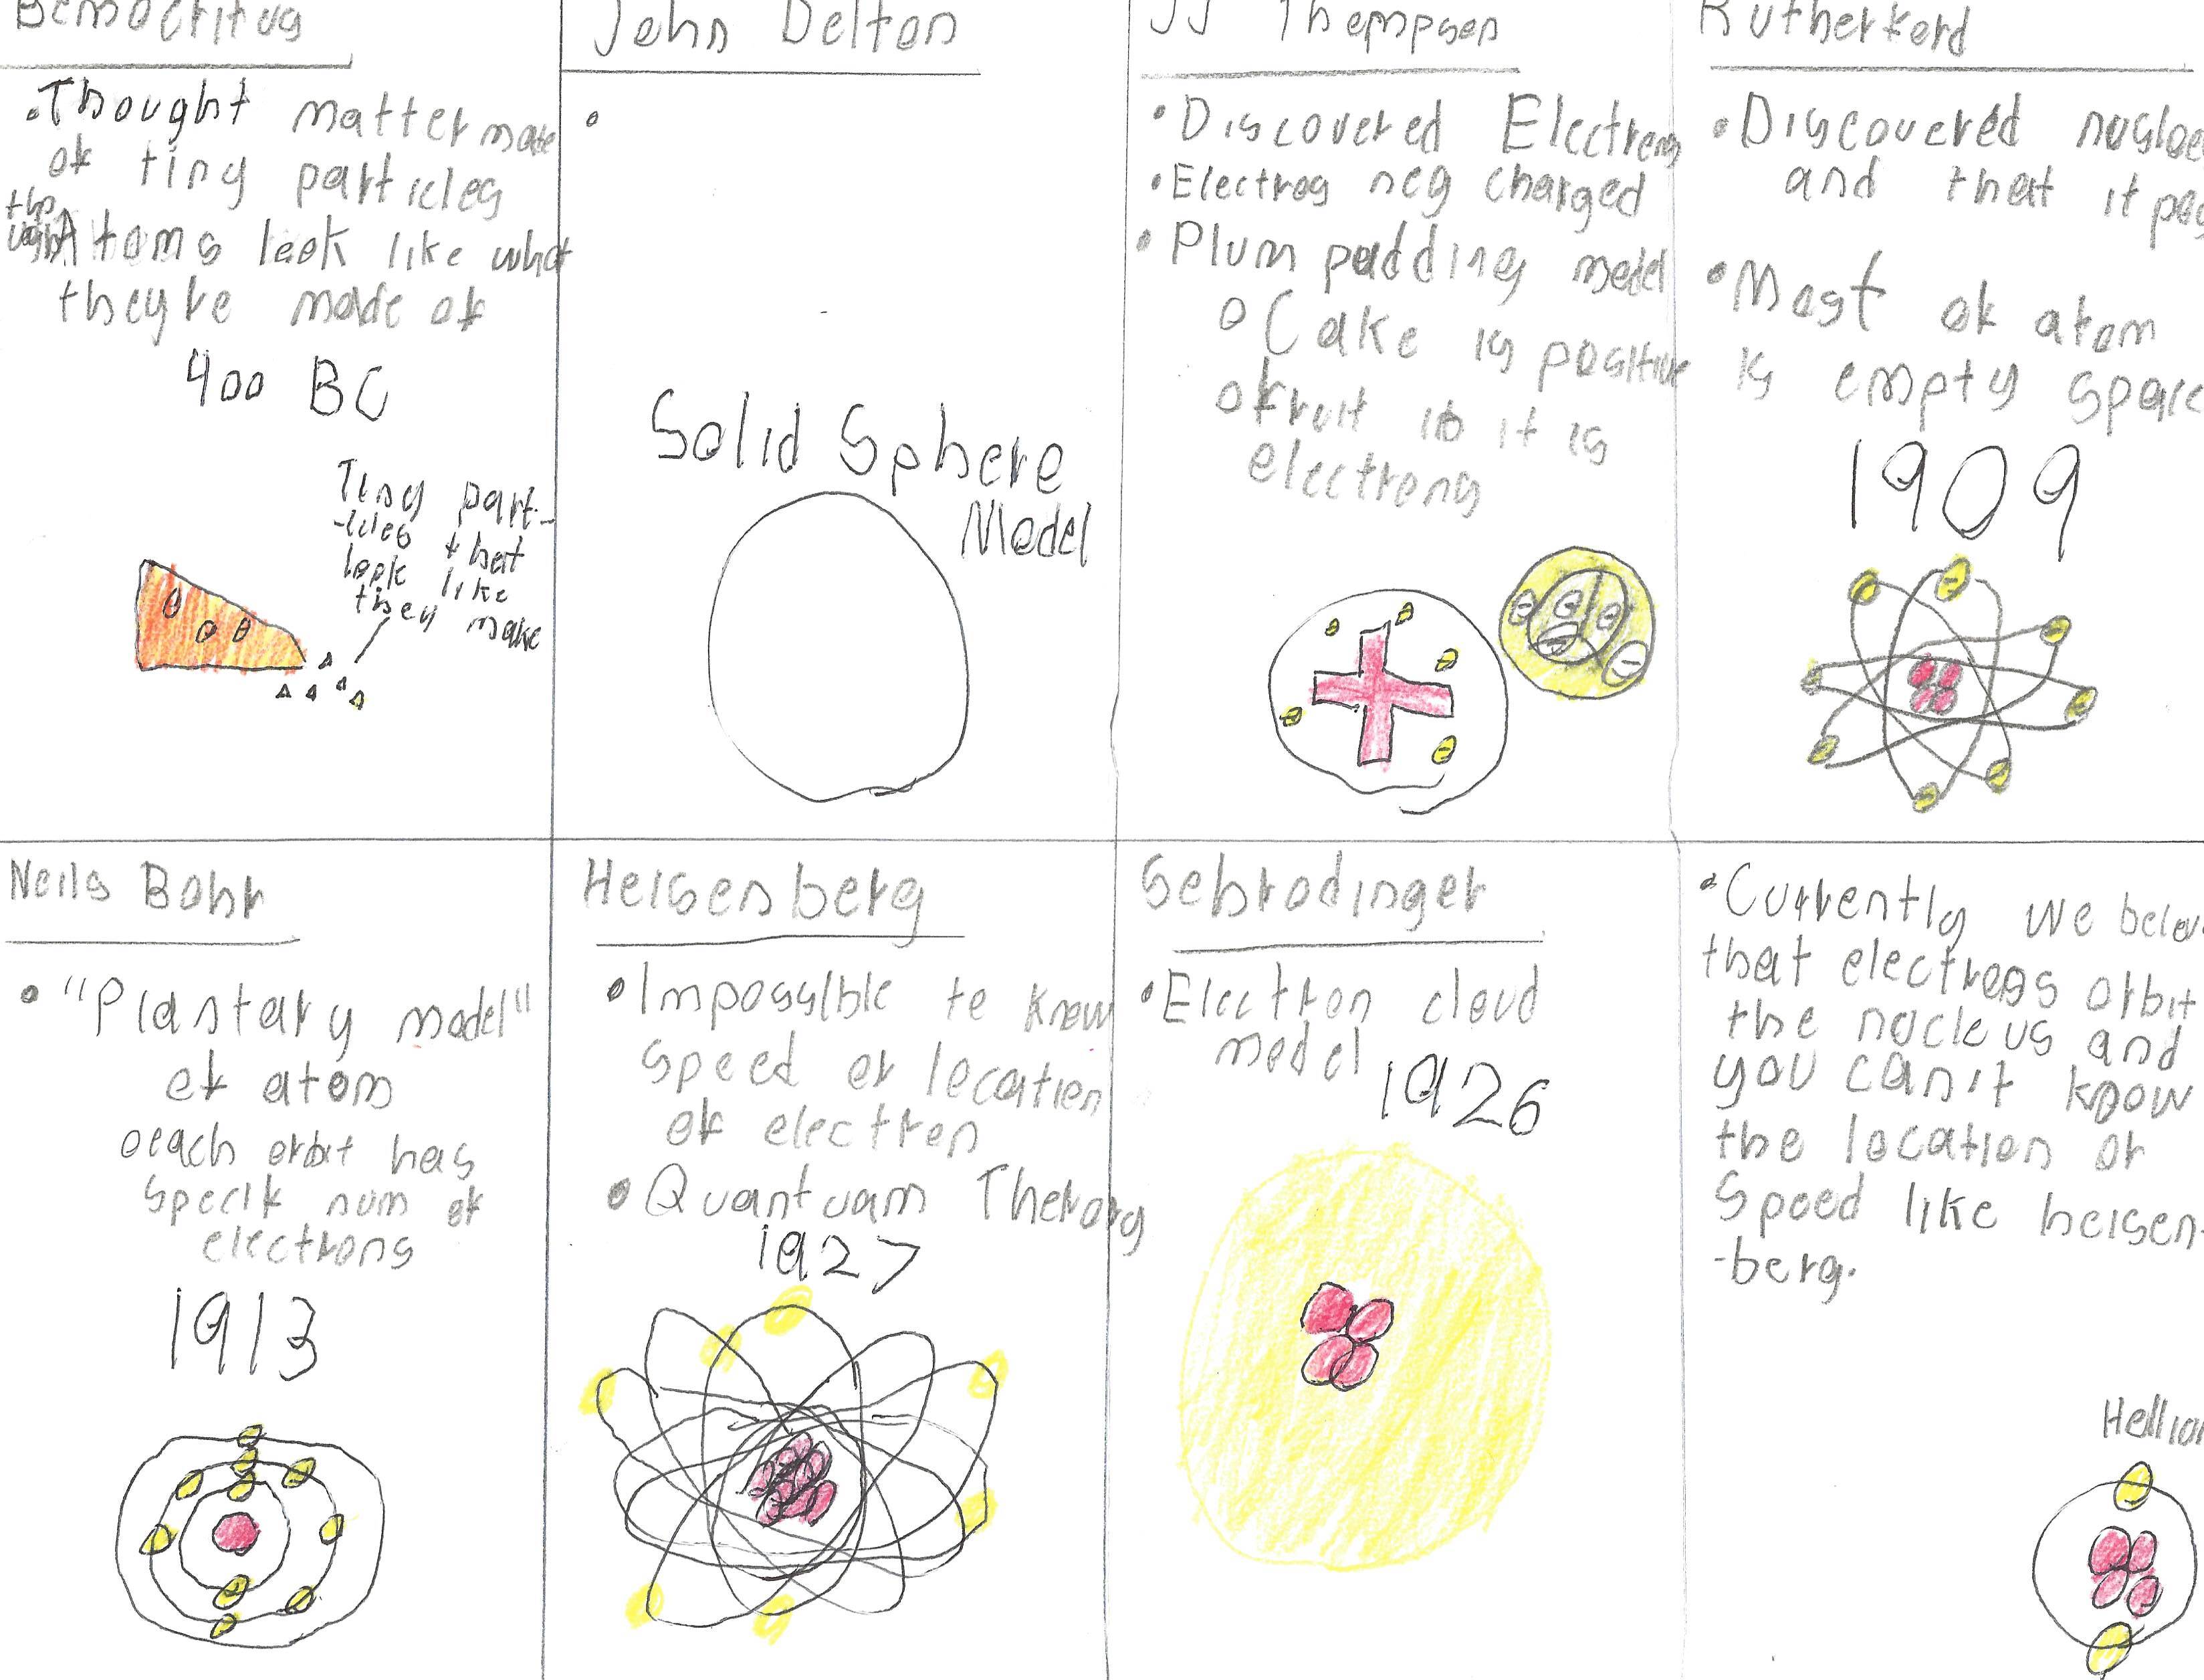 Democritus
• Thought matter made
of tiny particles
thought Atoms look like what
they're made of
400 BC
Tiny part-
-icles that
look like
they make
John Delton
•
Solid Sphere
Model
JJ Thompson
• Discovered Electrons
• Electros neg charged
• Plum pudding model
o Cake is positive
o fruit in it is
electrons
Rutherford
• Discovered
and that it
• Most of atom
is empty space
1909
Neils Bohr
• "Plantary model"
of atom
o each orbit has
specif num of
electrons
1913
Heisenberg
• Impossible to know
speed or location
of electron
• Quantuam Therory
1927
Schrodinger
• Electron cloud
model
1926
• Currently we
that electrons orbit
the nucleus and
you can't know
the location or
speed like heisen-
-berg.